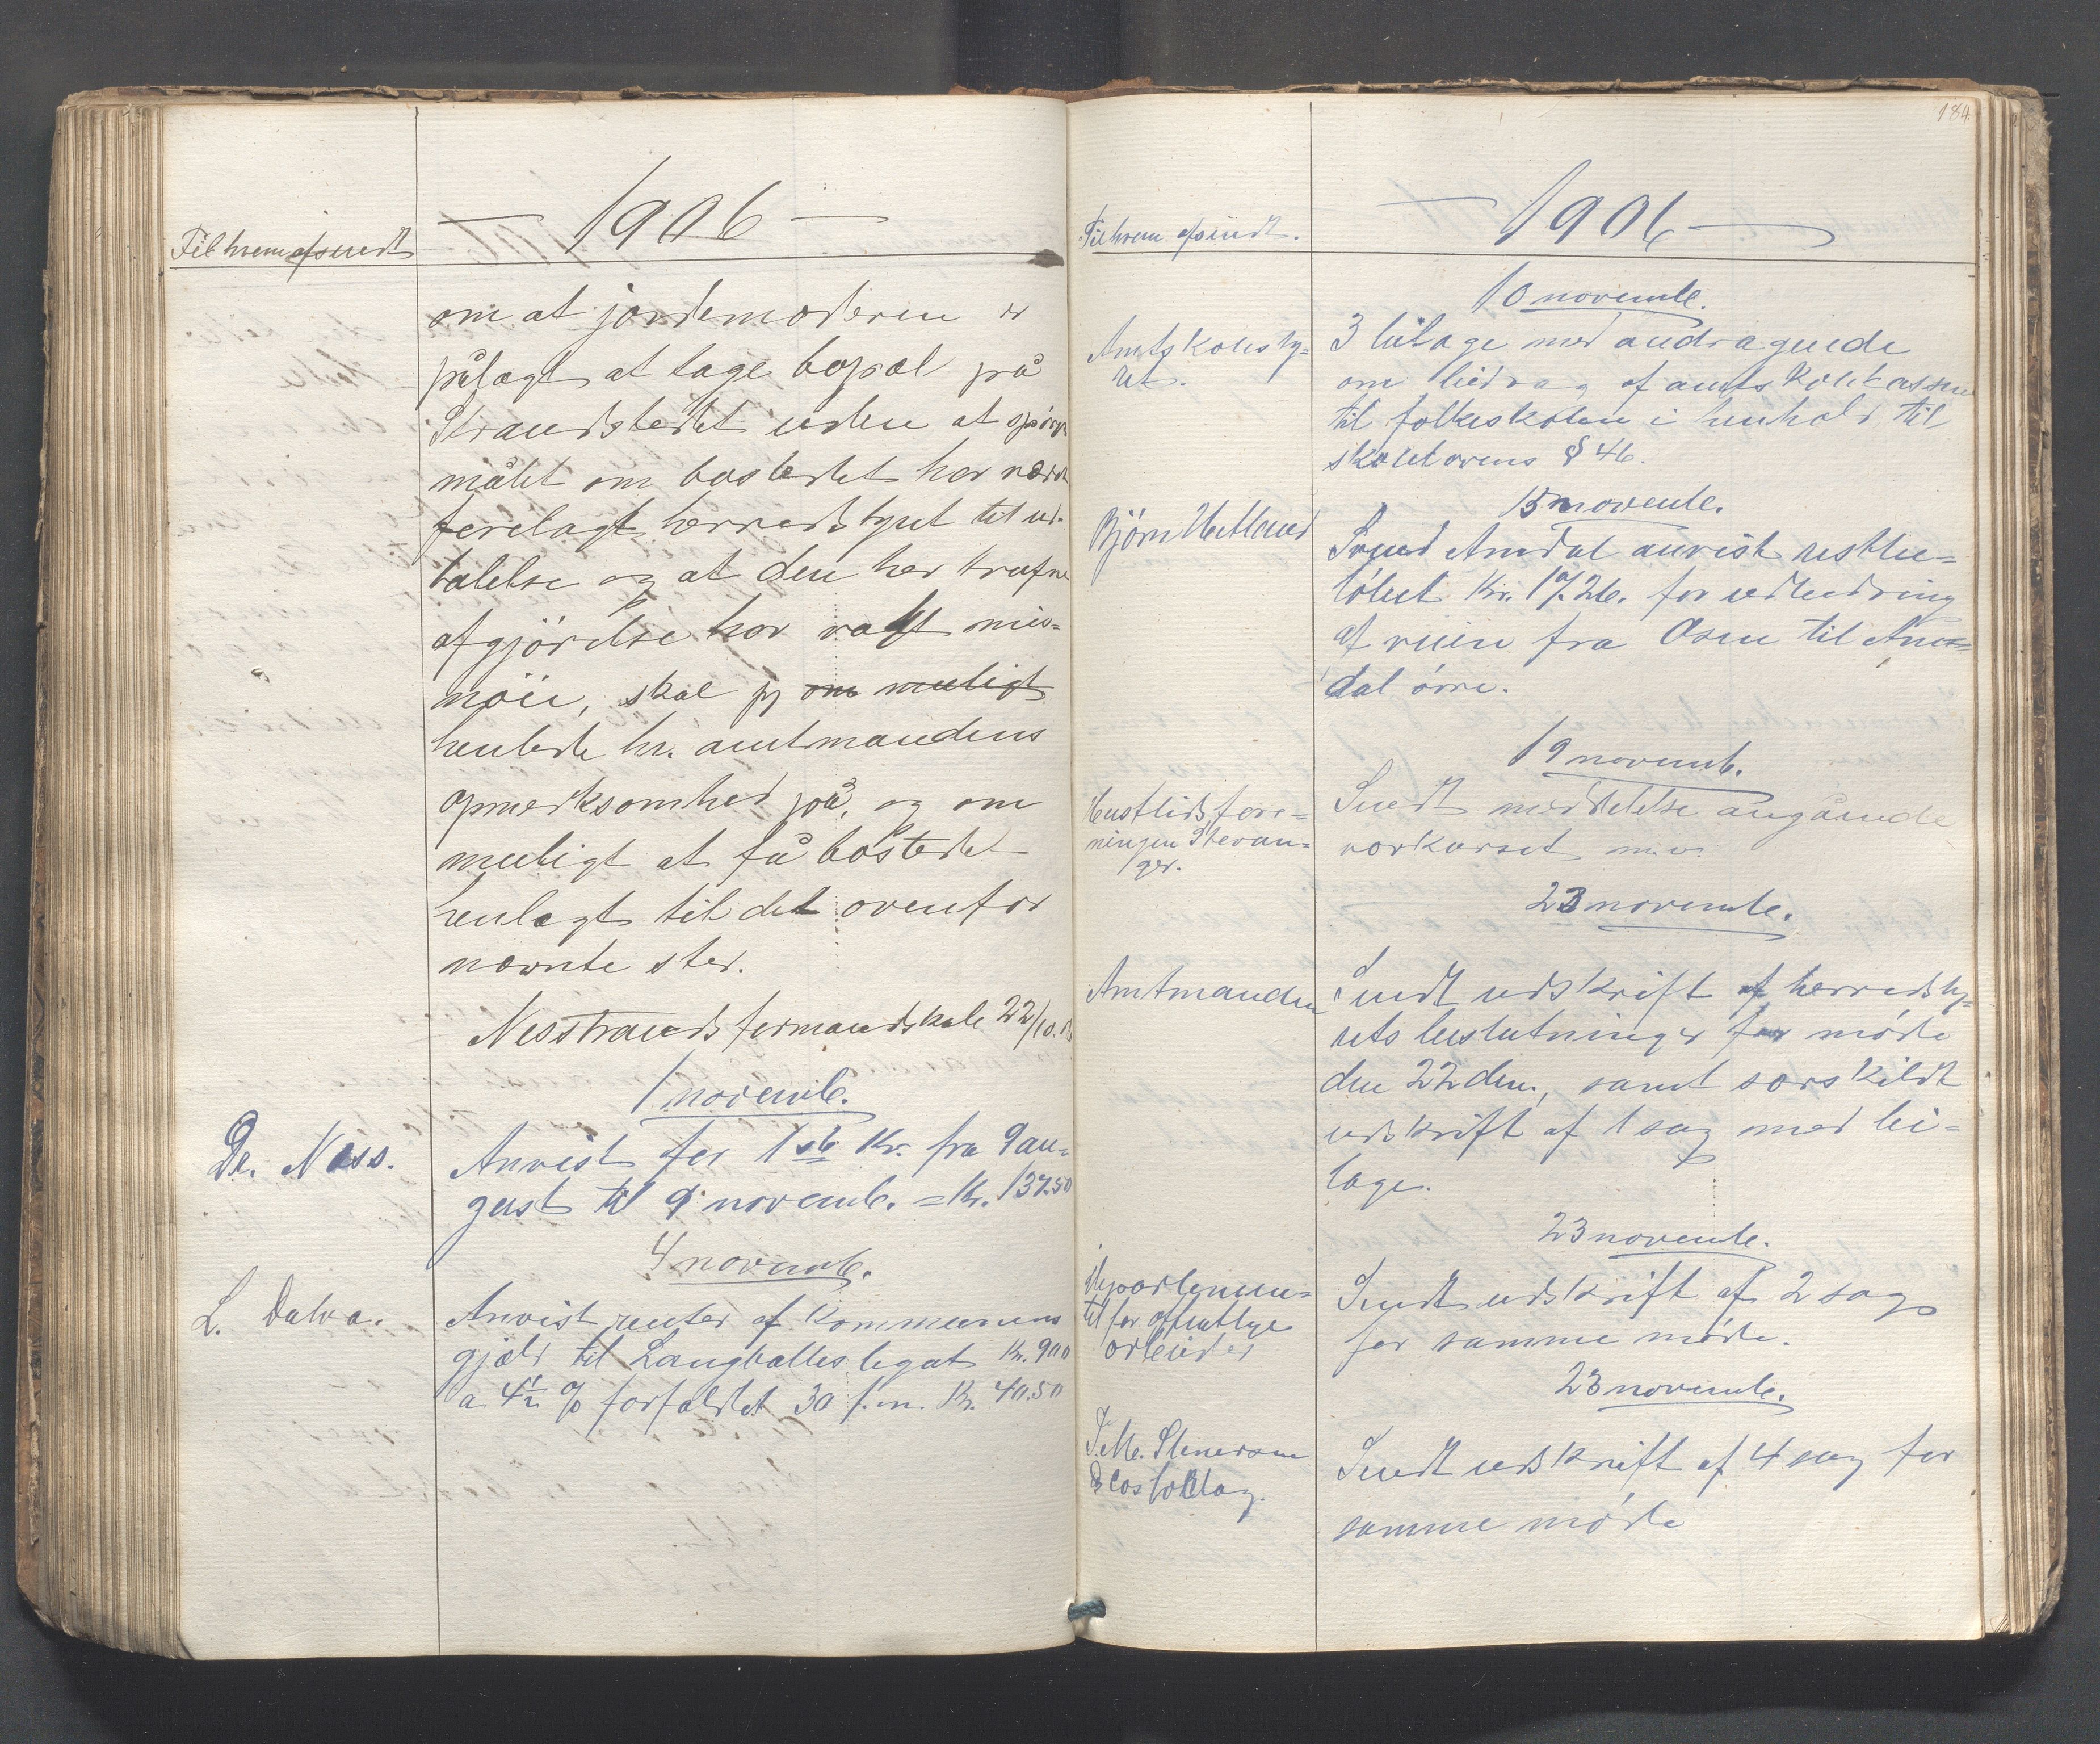 Til hvem afsendt
— 1906 —
om at jordemoderen er
pålagt at tage bopæl på
Strandstedet uden at spörgs
målet om bostedet har været
forelagt herredstyret til ud-
talelse og at den her trufne
afgjörelse har vakt mis-
nöie, skal jeg om muligt
henlede hr. amtmandens
opmerksomhed på, og om
muligt at få bostedet
henlagt til det ovenfor
nævnte sted.
Nesstrands formandskab 22/10.
1 novemb.
Dr. Næss.
Anvist for 1ste Kv. fra 9 au-
gust til 9 novemb. = Kr. 137.50
4 novemb.
L. Dalva.
Anvist renter af kommunens
gjæld til Langballes legat Kr. 900
a 4½ % forfaldet 30 f.m. Kr. 40.50
184
Til hvem afsendt.
— 1906 —
10 novembe.
Amtskolesty-
ret.
3 bilage med andragende
om bidrag af amtsskolekassen
til folkeskolen i henhold til
skolelovens § 46.
15 novembe.
Björn Hetland
Svend Amdal anvist restbe-
löbet Kr. 17.26. for udbedring
af veien fra Osen til Am-
dal övre.
19 novemb.
Husflidsfore-
ningen Stavan-
ger.
Sendt meddelelse angående
vævkurset m.v.
23 novembe.
Amtmanden
Sendt udskrift af herredsty-
rets beslutninger for möde
den 22 dm., samt særskildt
udskrift af 1 sag med bi-
lage.
23 novembe.
Departemen-
tet for offentlige
arbeider
Sendt udskrift af 2 sag
for samme möde.
23 novembe.
J. M. Stenersen
& Cos forlag.
Sendt udskrift af 4 sag for
samme möde